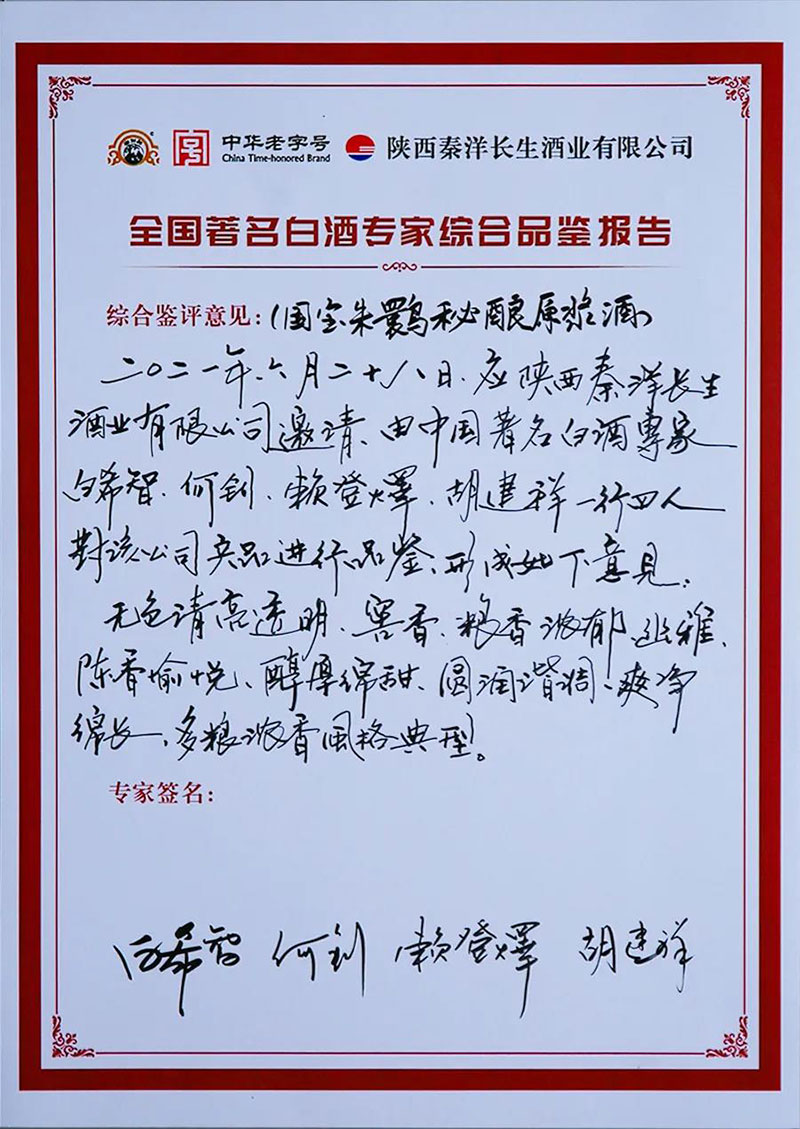 中华老字号
China Time-honored Brand
陕西秦洋长生酒业有限公司
全国著名白酒专家综合品鉴报告
综合鉴评意见：（国宝朱鹮秘酿原浆酒）
二〇二一年六月二十八日、应陕西秦洋长生
酒业有限公司邀请、由中国著名白酒專家
白希智、何钊、赖登燡、胡建祥一行四人
對该公司产品进行品鉴、形成如下意见：
无色清亮透明、窖香、粮香浓郁、幽雅、
陈香愉悦、醇厚绵甜、圆润谐调、爽净
绵长、多粮浓香風格典型。
专家签名：
白希智 何钊 赖登燡 胡建祥